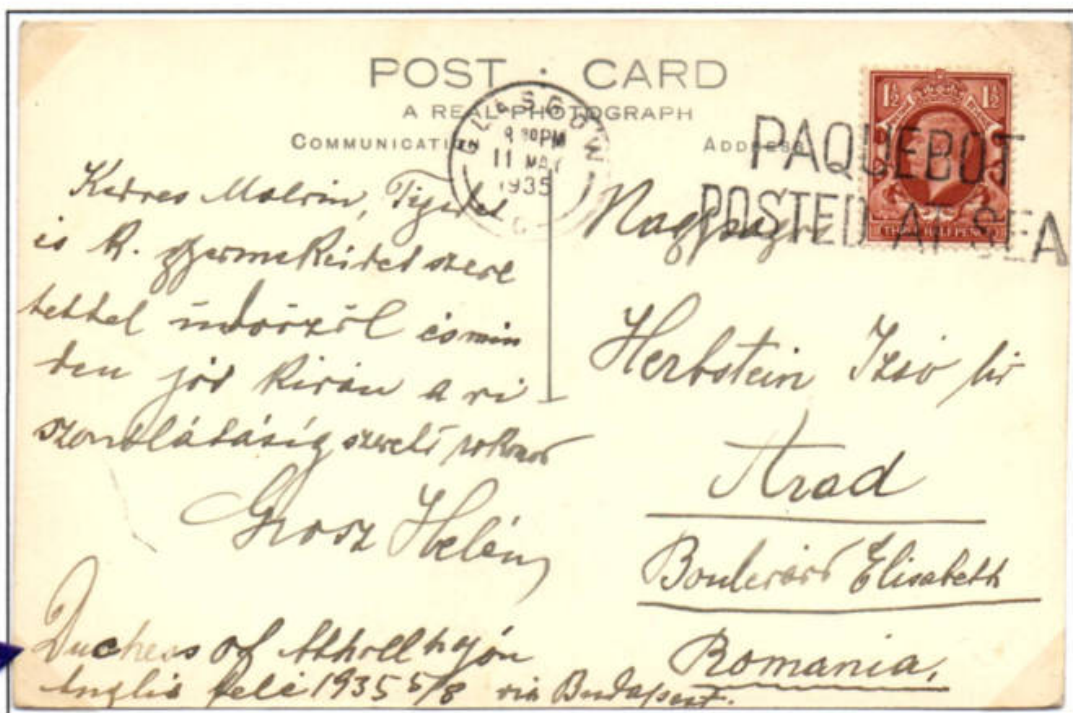 POST · CARD
A REAL PHOTOGRAPH
COMMUNICATI
ADDRESS
GLASGOW
8 30 PM
11 MAY
1935
C
PAQUEBOT
POSTED AT SEA
1½ 1½
THREE HALF PENCE
Kedves Malvin, Tégedet
is k. gyermekeidet szere
tettel üdvözöl és min
den jót kiván a vi
szontlátásig szerető rokonod
Grosz Helén
Duchess of Atholl hajón
Anglia felé 1935 5/8 via Budapest.
Herbstein Izsó úr
Arad
Boulevard Elisabeth
Romania,